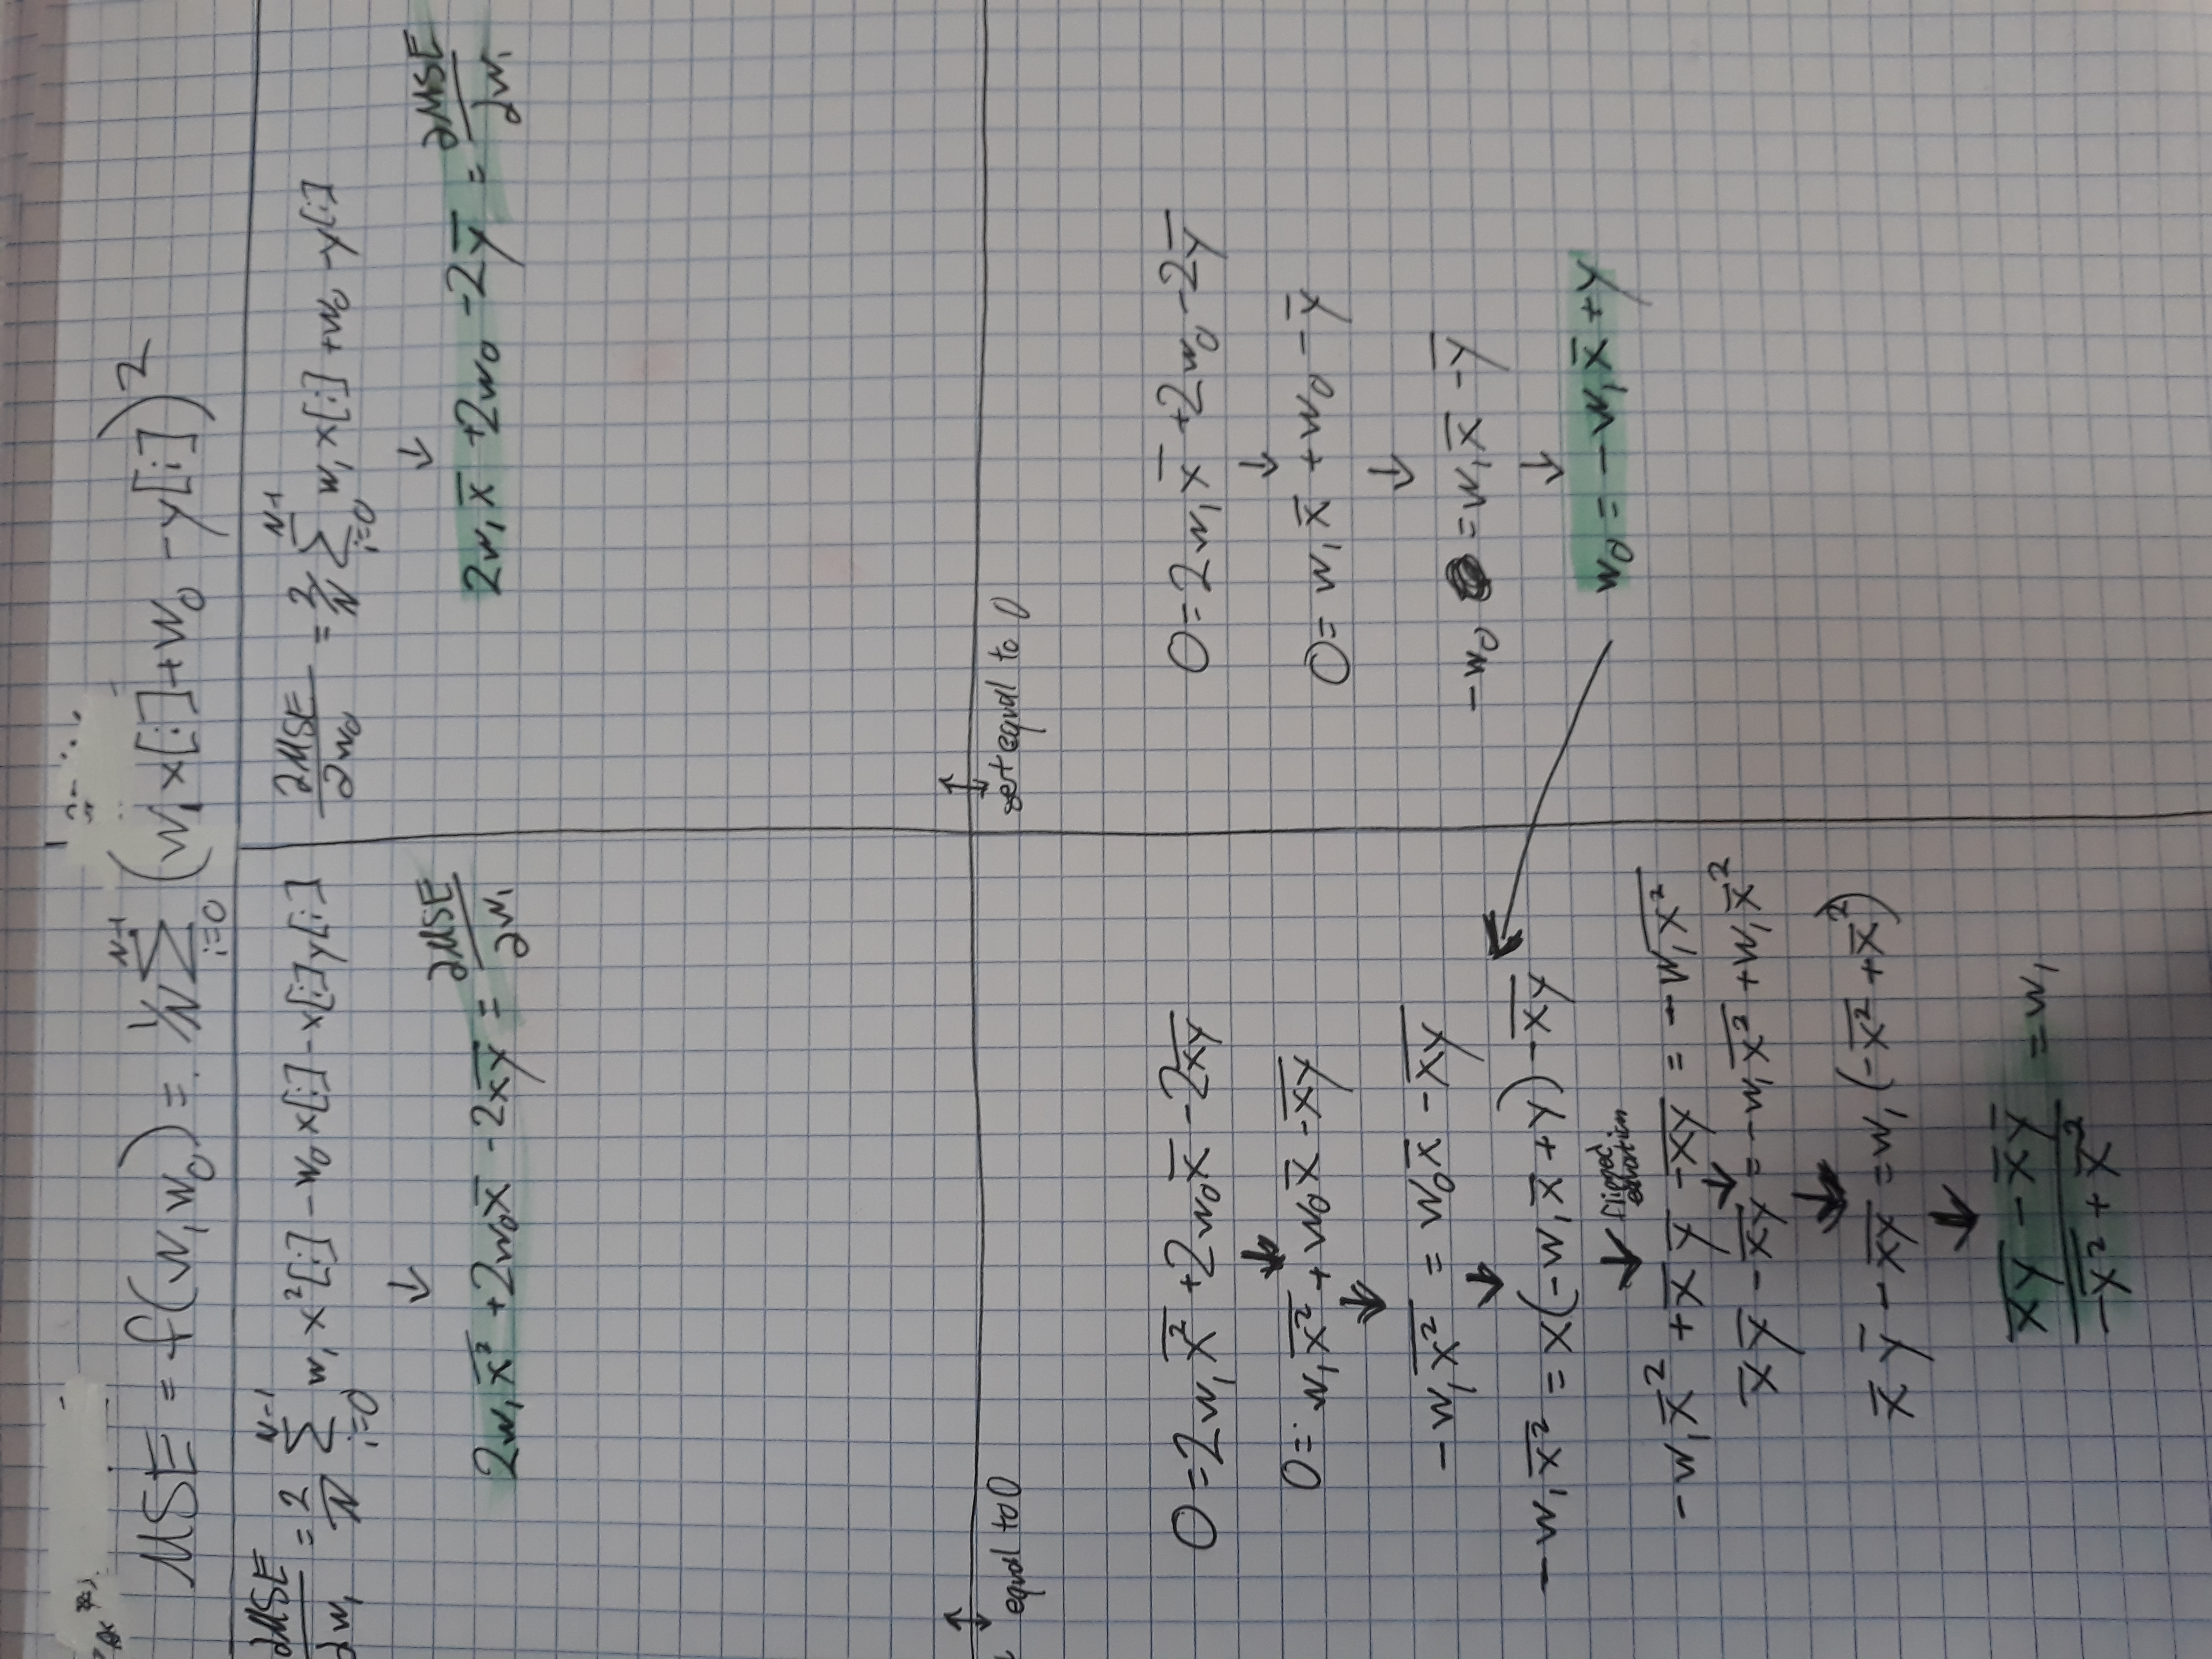 MSE = f(w, w₀) = 1/N Σ_{i=0}^{N-1} (w₁x[i]+w₀ -y[i])²
∂MSE/∂w₁ = 2/N Σ_{i=0}^{N-1} w₁x²[i] -w₀x[i]-x[i]y[i]
↓
2w₁x̅²̅ +2w₀x̅ -2x̅y̅ = ∂MSE/∂w₁
∂MSE/∂w₀ = 2/N Σ_{i=0}^{N-1} w₁x[i] +w₀ -y[i]
↓
2w₁x̅ +2w₀ -2y̅ = ∂MSE/∂w₁
↕
equal to 0
0=2w₁x̅²̅ +2w₀x̅ -2x̅y̅
↓
0= w₁x̅²̅ + w₀x̅ -x̅y̅
↓
-w₁x̅²̅ = w₀x̅ -x̅y̅
↓
-w₁x̅²̅ = x(-w₁x̅ +y) -x̅y̅
↓ flipped equation
-w₁x̅² +x̅ y̅ -x̅y̅ = -w₁x̅²̅
↓
x̅ y̅ -x̅y̅ = -w₁x̅²̅ +w₁x̅²
↓
x̅ y̅ - x̅y̅ =w₁(-x̅²̅ +x̅²)
↓
(x̅y̅ - x̅ y̅)/(-x̅²̅ + x̅²) = w₁
↕
set equal to 0
0=2w₁x̅ +2w₀ -2y̅
↓
0= w₁x̅ +w₀ -y̅
↓
-w₀ =w₁x̅ -y̅
↓
w₀ = -w₁x̅ +y